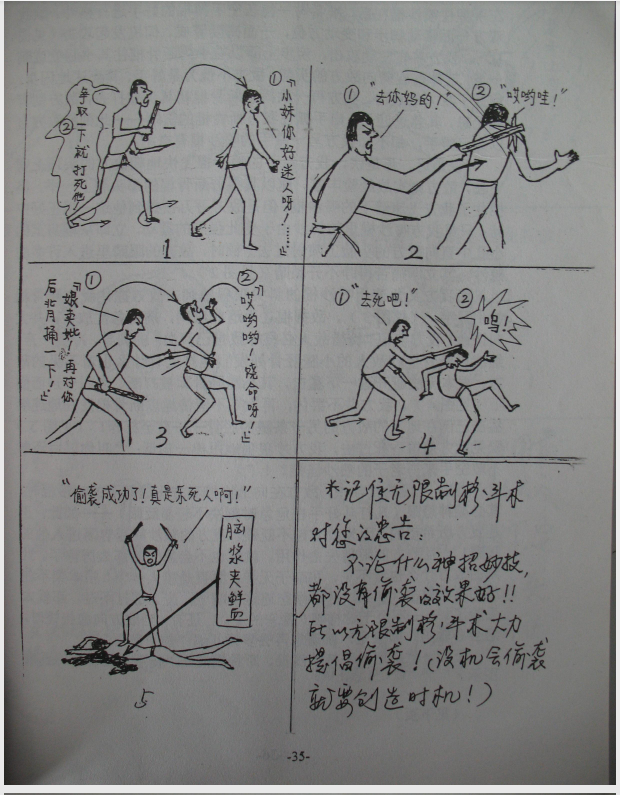 ①"小妹你好迷人呀！……"
②争取一下就打死他
1
①"去你妈的！"
②"哎哟哇！"
2
①"娘卖妣！再对你
后背捅一下！"
②"哎哟哟！饶命呀！"
3
①"去死吧！"
②呜！
4
"偷袭成功了！真是乐死人啊！"
脑浆夹鲜血
5
※记住无限制格斗术
对您的忠告：
不论什么神招妙技，
都没有偷袭的效果好！！
所以无限制格斗术大力
提倡偷袭！（没机会偷袭
就要创造时机！）
-35-